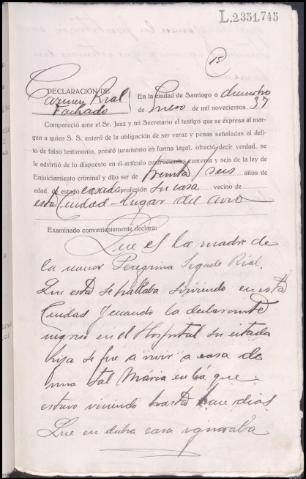 L.2351.745
15
DECLARACIÓN DE
Carmen Rial
Fachado
En la ciudad de Santiago a cuatro
de Enero de mil novecientos 37
Compareció ante el Sr. Juez y mi Secretario el testigo que se expresa al mar-
gen a quien S. S. enteró de la obligación de ser veraz y penas señaladas al deli-
to de falso testimonio, prestó juramento en forma legal, ofreció decir verdad, se
le advirtió de lo dispuesto en el artículo cuatrocientos y seis de la ley de
Enjuiciamiento criminal y dijo ser de treinta y seis años de
edad, de estado casada profesión su casa vecino de
esta Ciudad - lugar del
Examinado convenientemente declara:
Que es la madre de
la menor Peregrina Segade Rial.
Que esta se hallaba sirviendo en esta
Ciudad y cuando la declarante
ingresó en el Hospital su citada
hija se fue a vivir a casa de
una tal María en la que
estuvo viviendo hasta hace días
Que en dicha casa ignoraba